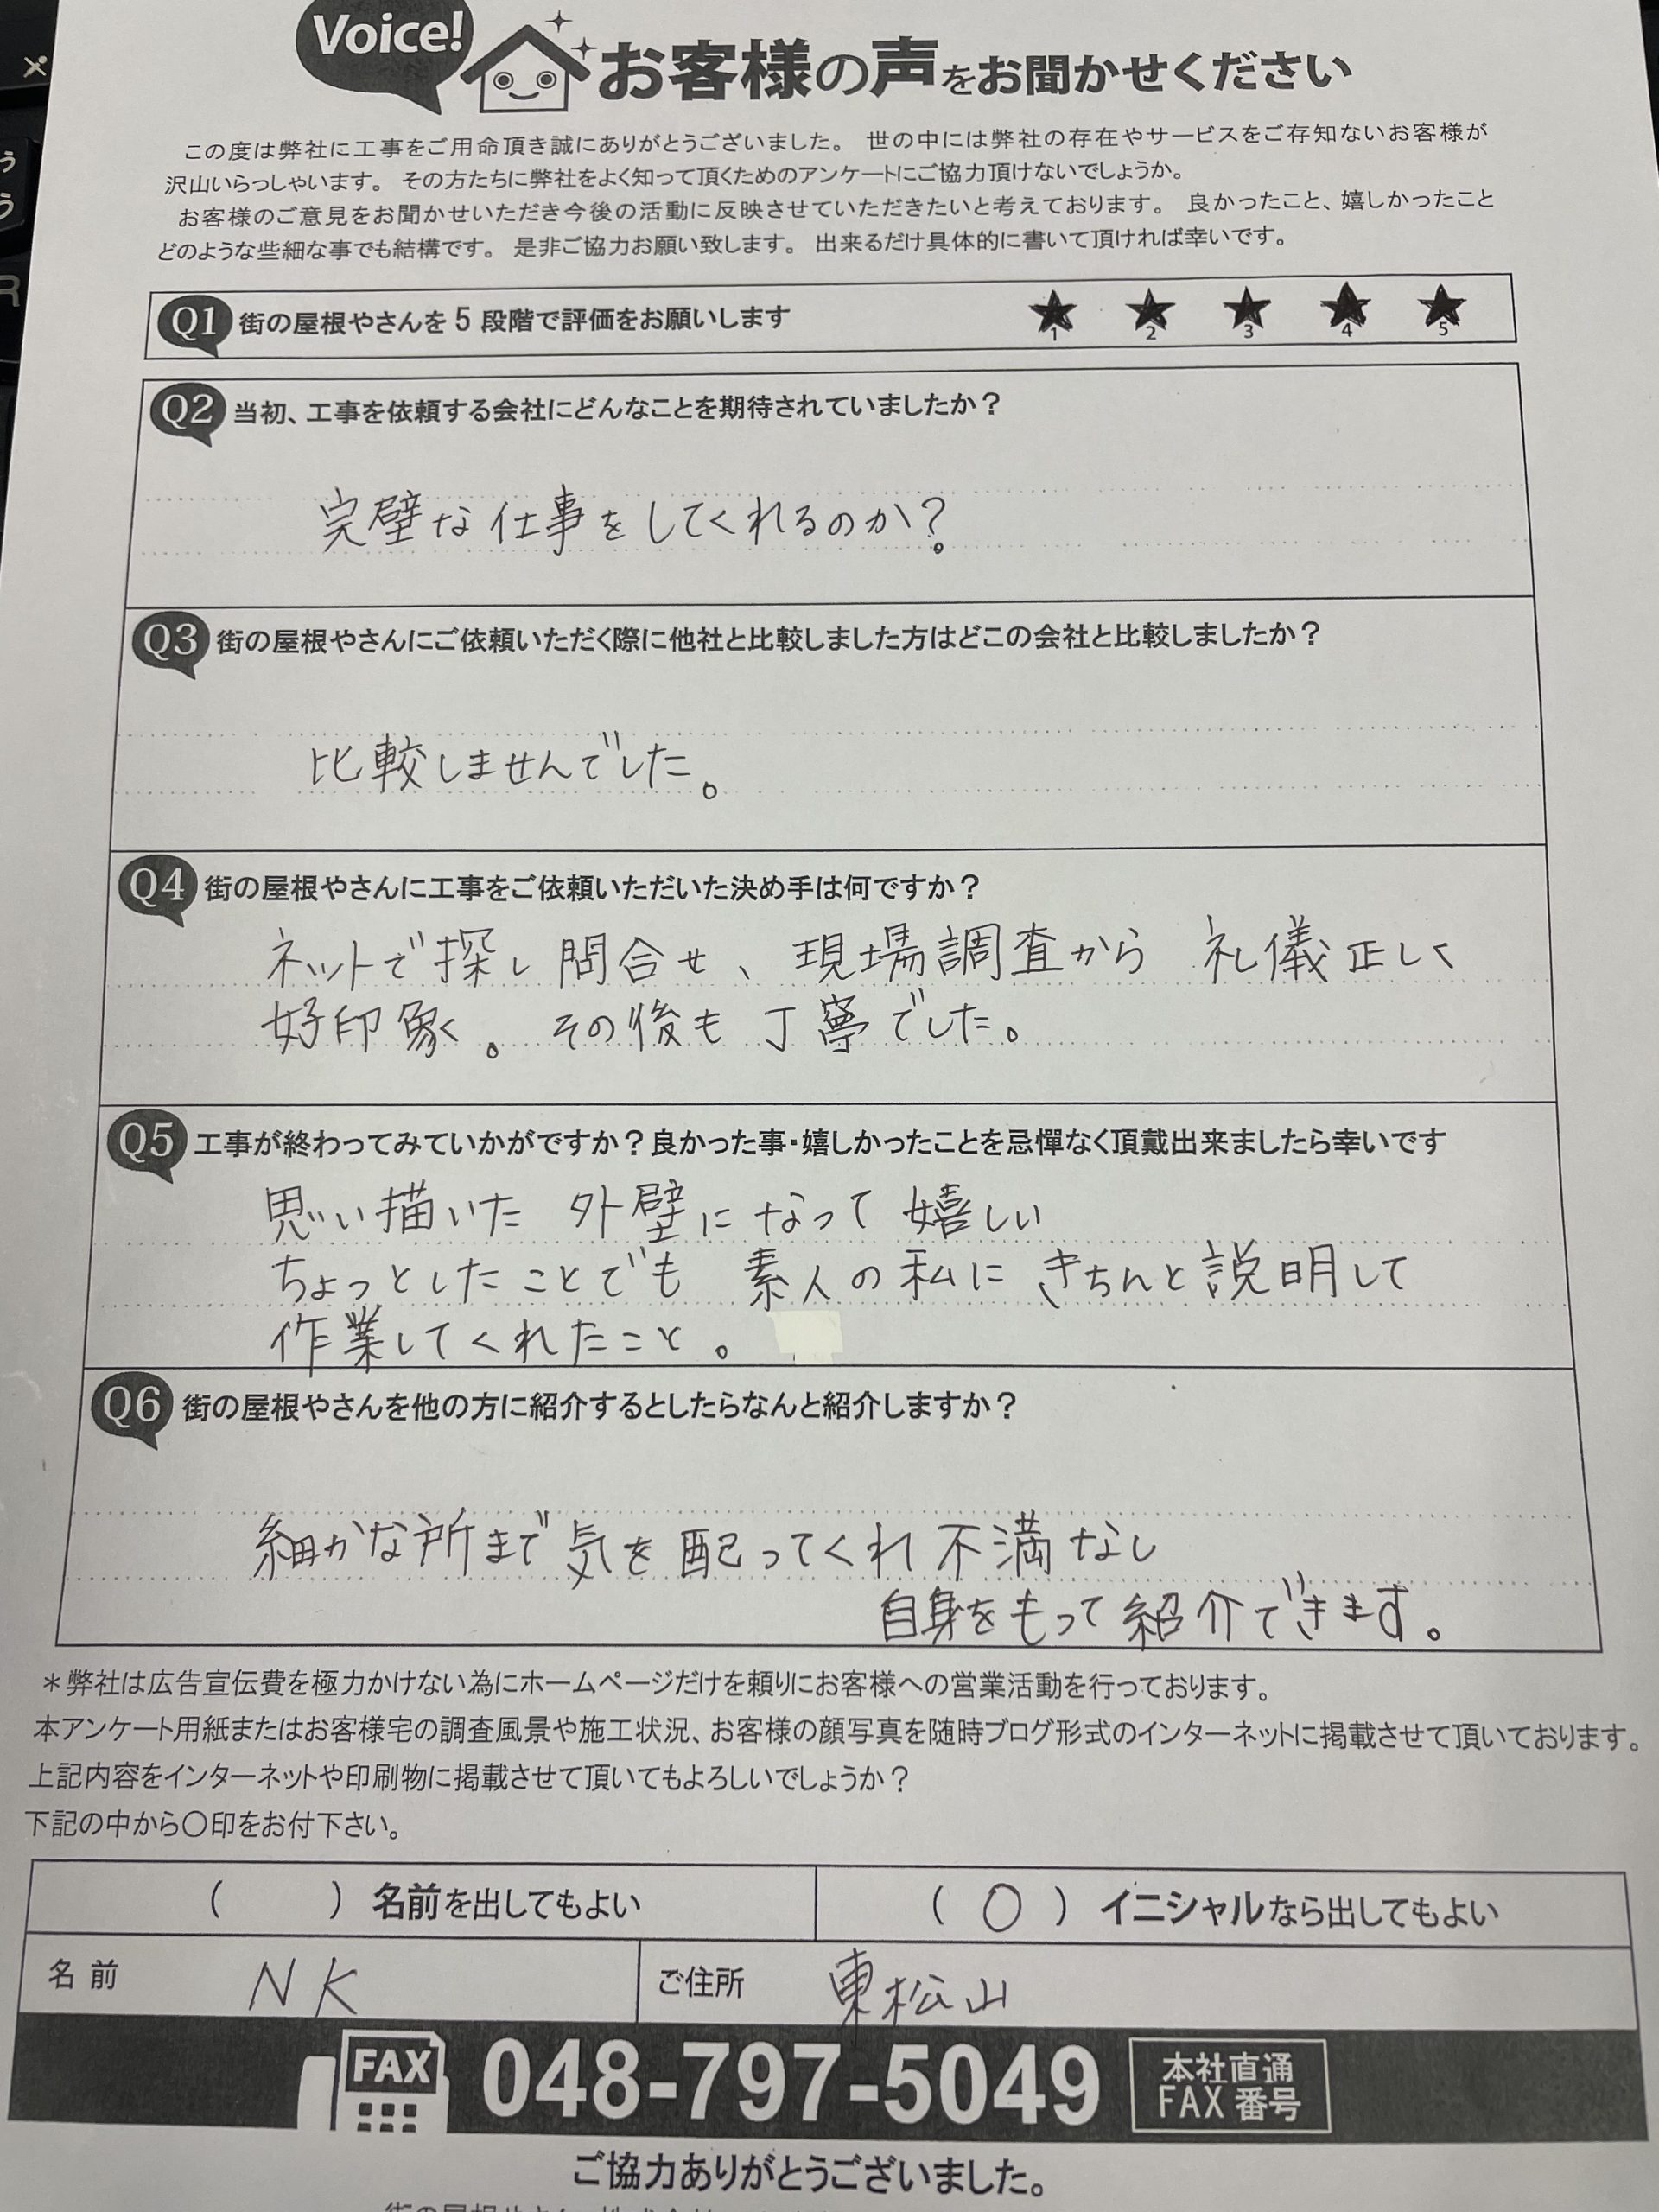 Voice!
お客様の声をお聞かせください
この度は弊社に工事をご用命頂き誠にありがとうございました。 世の中には弊社の存在やサービスをご存知ないお客様が
沢山いらっしゃいます。 その方たちに弊社をよく知って頂くためのアンケートにご協力頂けないでしょうか。
お客様のご意見をお聞かせいただき今後の活動に反映させていただきたいと考えております。 良かったこと、嬉しかったこと
どのような些細な事でも結構です。 是非ご協力お願い致します。 出来るだけ具体的に書いて頂ければ幸いです。
Q1 街の屋根やさんを5段階で評価をお願いします ★1 ★2 ★3 ★4 ★5
Q2 当初、工事を依頼する会社にどんなことを期待されていましたか？
完璧な仕事をしてくれるのか？
Q3 街の屋根やさんにご依頼いただく際に他社と比較しました方はどこの会社と比較しましたか？
比較しませんでした。
Q4 街の屋根やさんに工事をご依頼いただいた決め手は何ですか？
ネットで探し問合せ、現場調査から 礼儀正しく
好印象く。その後も丁寧でした。
Q5 工事が終わってみていかがですか？良かった事・嬉しかったことを忌憚なく頂戴出来ましたら幸いです
思い描いた 外壁になって嬉しい
ちょっとしたことでも 素人の私に きちんと説明して
作業してくれたこと。
Q6 街の屋根やさんを他の方に紹介するとしたらなんと紹介しますか？
細かな所まで気を配ってくれ不満なし
自身をもって紹介できます。
＊弊社は広告宣伝費を極力かけない為にホームページだけを頼りにお客様への営業活動を行っております。
本アンケート用紙またはお客様宅の調査風景や施工状況、お客様の顔写真を随時ブログ形式のインターネットに掲載させて頂いております。
上記内容をインターネットや印刷物に掲載させて頂いてもよろしいでしょうか？
下記の中から〇印をお付下さい。
（　　）名前を出してもよい （〇）イニシャルなら出してもよい
名前 NK ご住所 東松山
FAX 048-797-5049 本社直通
FAX番号
ご協力ありがとうございました。